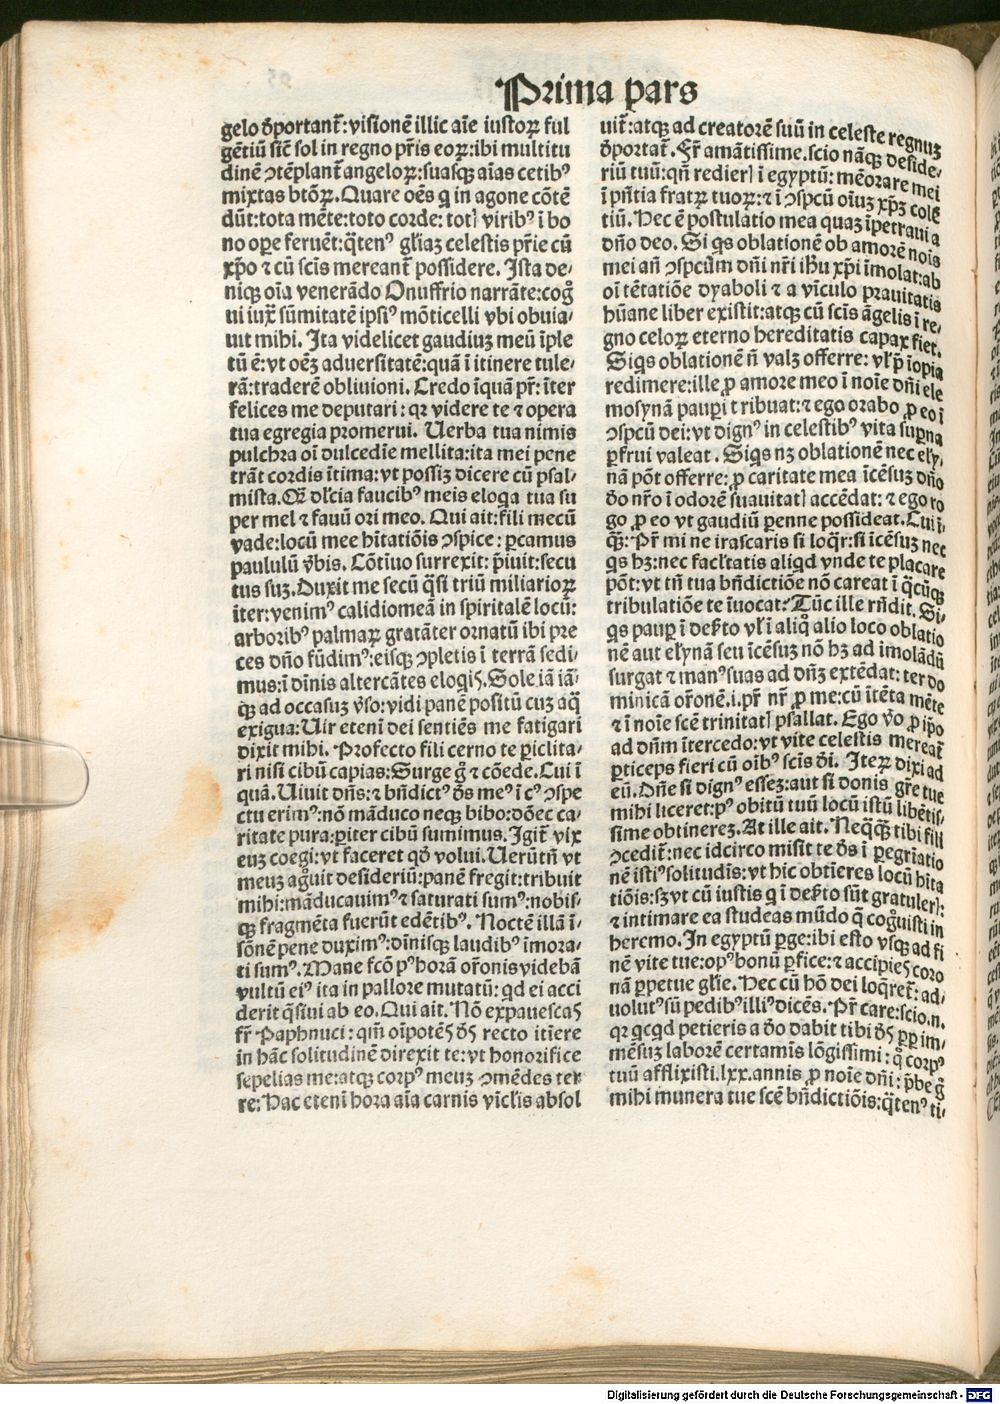 Prima ꝑars
gelo ꝺportant̃: visionẽ illic aĩe iustoꝝ ful
gẽtiũ sic̃ sol in regno pr̃is eoꝝ: ibi multitu
dinẽ ꝯtẽplant̃ angeloꝝ: suasqꝫ aĩas cetibꝰ
mixtas btõꝝ. Quare oẽs q in agone cõtẽ
dũt: tota mẽte: toto corde: totꝭ viribꝰ ĩ bo
no oꝑe feruẽt: q̃tenꝰ gl̃iaꝫ celestis pr̃ie cũ
xp̃o ⁊ cũ scĩs mereant̃ possidere. Ista de⸗
niqꝫ oĩa venerãdo Onuffrio narrãte: cog̃
ui iux̃ sũmitatẽ ipsiꝰ mõticelli vbi obuia⸗
uit mihi. Ita videlicet gaudiuꝫ meũ ĩple
tũ ẽ: vt oẽꝫ aduersitatẽ: quã ĩ itinere tule⸗
rã: traderẽ obliuioni. Credo ĩquã pr̃: ĩter
felices me deputari: qꝛ videre te ⁊ opera
tua egregia promerui. Uerba tua nimis
pulchra oĩ dulcedĩe mellita: ita mei pene
trãt cordis ĩtima: vt possiꝫ dicere cũ psal⸗
mista. Q̃ dl̃cia faucibꝰ meis eloqa tua su
per mel ⁊ fauũ ori meo. Qui ait: fili mecũ
vade: locũ mee hĩtatiõis ꝯspice: ꝑcamus
paululũ v̾bis. Cõtĩuo surrexit: p̃iuit: secu
tus suꝫ. Duxit me secũ q̃si triũ miliarioꝝ
ĩter: venimꝰ calidiomeã in spiritalẽ locũ:
arboribꝰ palmaꝝ gratãter ornatũ ibi pre
ces dño fũdimꝰ: eisqꝫ ꝯpletis ĩ terrã sedi⸗
mus: ĩ dĩnis altercãtes eloqis. Sole iã iã⸗
qꝫ ad occasuꝫ v̾so: vidi panẽ positũ cuꝫ aq̃
exigua: Uir etenĩ dei sentiẽs me fatigari
dixit mihi. Profecto fili cerno te ꝑiclita⸗
ri nisi cibũ capias: Surge g̃ ⁊ cõede. Cui ĩ
quã. Uiuit dñs: ⁊ bñdictꝰ ꝺs meꝰ ĩ cꝰ ꝯspe
ctu erimꝰ: nõ mãduco neqꝫ bibo: dõec ca⸗
ritate pura: ꝑiter cibũ sumimus. Igit̃ vix
euꝫ coegi: vt faceret qꝺ volui. Uerũtñ vt
meuꝫ ag̃uit desideriũ: panẽ fregit: tribuit
mihi: mãducauimꝰ ⁊ saturati sumꝰ: nobis⸗
qꝫ fragmẽta fuerũt edẽtibꝰ. Noctẽ illã ĩ⸗
sõnẽ pene duximꝰ: dĩnisqꝫ laudibꝰ ĩmora⸗
ti sumꝰ. Mane fcõ pꝰ horã or̃onis videbã
vultũ eiꝰ ita in pallore mutatũ: qd ei acci
derit q̃siui ab eo. Qui ait. Nõ expauescas
fr̃ Paphnuci: qm̃ oĩpotẽs ꝺs recto itĩere
in hãc solitudinẽ direxit te: vt honorifice
sepelias me: atqꝫ corpꝰ meuꝫ ꝯmẽdes ter
re: Hac etenĩ hora aĩa carnis vĩclis absol
uit̃: atqꝫ ad creatorẽ suũ in celeste regnuꝫ
ꝺportat̃. Fr̃ amãtissime. scio nãqꝫ deside⸗
riũ tuũ: qñ redierꝭ ĩ egyptũ: mẽorare mei
ĩ pñtia fratꝝ tuoꝝ: ⁊ ĩ ꝯspcũ oĩuꝫ xp̃ꝫ colẽ
tiũ. Hec ẽ postulatio mea quaꝫ ĩpetraui a
dño deo. Si qs oblationẽ ob amorẽ nois
mei añ ꝯspcũm dñi nr̃i ihu xp̃i ĩmolat: ab
oĩ tẽtatiõe dyaboli ⁊ a vĩculo prauitatis
hũane liber existit: atqꝫ cũ scĩs ãgelis ĩ re⸗
gno celoꝝ eterno hereditatis capax fiet.
Siqs oblationẽ ñ valꝫ offerre: vl̃ p̃ ĩopia
redimere: ille ꝓ amore meo ĩ noĩe dñi ele
mosynã pauꝑi tribuat: ⁊ ego orabo ꝓ eo ĩ
ꝯspcũ dei: vt dignꝰ in celestibꝰ vita suꝑna
ꝑfrui valeat. Siqs nꝫ oblationẽ nec ely⸗
nã põt offerre: ꝓ caritate mea ĩcẽsuꝫ dño
ꝺo nr̃o ĩ odorẽ suauitatꝭ accẽdat: ⁊ ego ro
go ꝓ eo vt gaudiũ ꝑenne possideat. Cui ĩ⸗
q̃ꝫ: Pr̃ mi ne irascaris si loq̃r: si ĩcẽsuꝫ nec
qs hꝫ: nec facl̃tatis aliqd vnde te placare
põt: vt tñ tua bñdictiõe nõ careat ĩ q̃cũqꝫ
tribulatiõe te ĩuocat: Tũc ille rñdit. Si⸗
qs pauꝑ ĩ dek̃to vl̃ ĩ aliq̃ alio loco oblatio
nẽ aut elynã seu ĩcẽsuꝫ nõ hꝫ ad imolãdũ
surgat ⁊ manꝰ suas ad dñꝫ extẽdat: ter do
minicã or̃onẽ .i. pr̃ nr̃ ꝓ me: cũ ĩtẽta mẽte
⁊ ĩ noĩe scẽ trinitatꝭ psallat. Ego v̾o ꝓ ip̃o
ad dñm ĩtercedo: vt vite celestis mereat̃
ꝑticeps fieri cũ oĩbꝰ scĩs ꝺi. Iteꝝ dixi ad
eũ. Dñe si dignꝰ esseꝫ: aut si donis gr̃e tue
mihi liceret: pꝰ obitũ tuũ locũ istũ libẽtis⸗
sime obtinereꝫ. At ille ait. Neq̃q̃ꝫ tibi fili
ꝯcedit̃: nec idcirco misit te ꝺs ĩ ꝑegrĩatio
nẽ istiꝰ solitudĩs: vt hic obtĩeres locũ hĩta
tiõis: sꝫ vt cũ iustis q ĩ dek̃to sũt gratulerꝭ:
⁊ intimare ea studeas mũdo q̃ cog̃uisti in
heremo. In egyptũ ꝑge: ibi esto vsqꝫ ad fi
nẽ vite tue: opꝰ bonũ ꝑfice: ⁊ accipies coro
nã ꝑpetue gl̃ie. Hec cũ hõ dei loq̃ret̃: ad⸗
uolutꝰ sũ pedibꝰ illiꝰ dicẽs. Pr̃ care: scio. n.
qꝛ qcqd petieris a ꝺo dabit tibi ꝺs ꝓp̃ im⸗
mẽsuꝫ laborẽ certamĩs lõgissimi: q̃ corpꝰ
tuũ afflixisti. lxx. annis ꝓ noĩe dñi: p̃be g̃
mihi munera tue scẽ bñdictiõis: q̃tenꝰ ti⸗
Digitalisierung gefördert durch die Deutsche Forschungsgemeinschaft - DFG